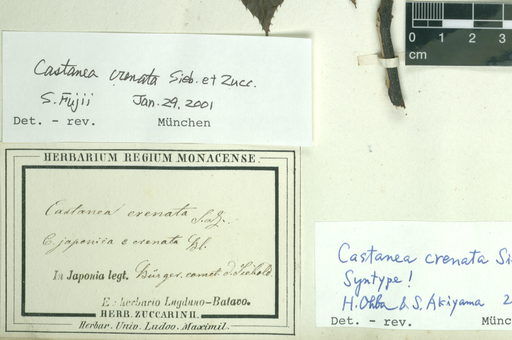 Batav.
0 1 2 3
cm
Castanea crenata Sieb. et Zucc.
S. Fujii Jan. 29, 2001
Det. - rev. München
HERBARIUM REGIUM MONACENSE.
Castanea crenata S. & Z.
C. japonica ε crenata Bl.
In Japonia legt. Bürger. comit. d. Siebold
E herbario Lugduno-Batavo.
HERB. ZUCCARINII.
Herbar. Univ. Ludov. Maximil.
Castanea crenata Si
Syntype!
H. Ohba & S. Akiyama 2
Det. - rev. Münc